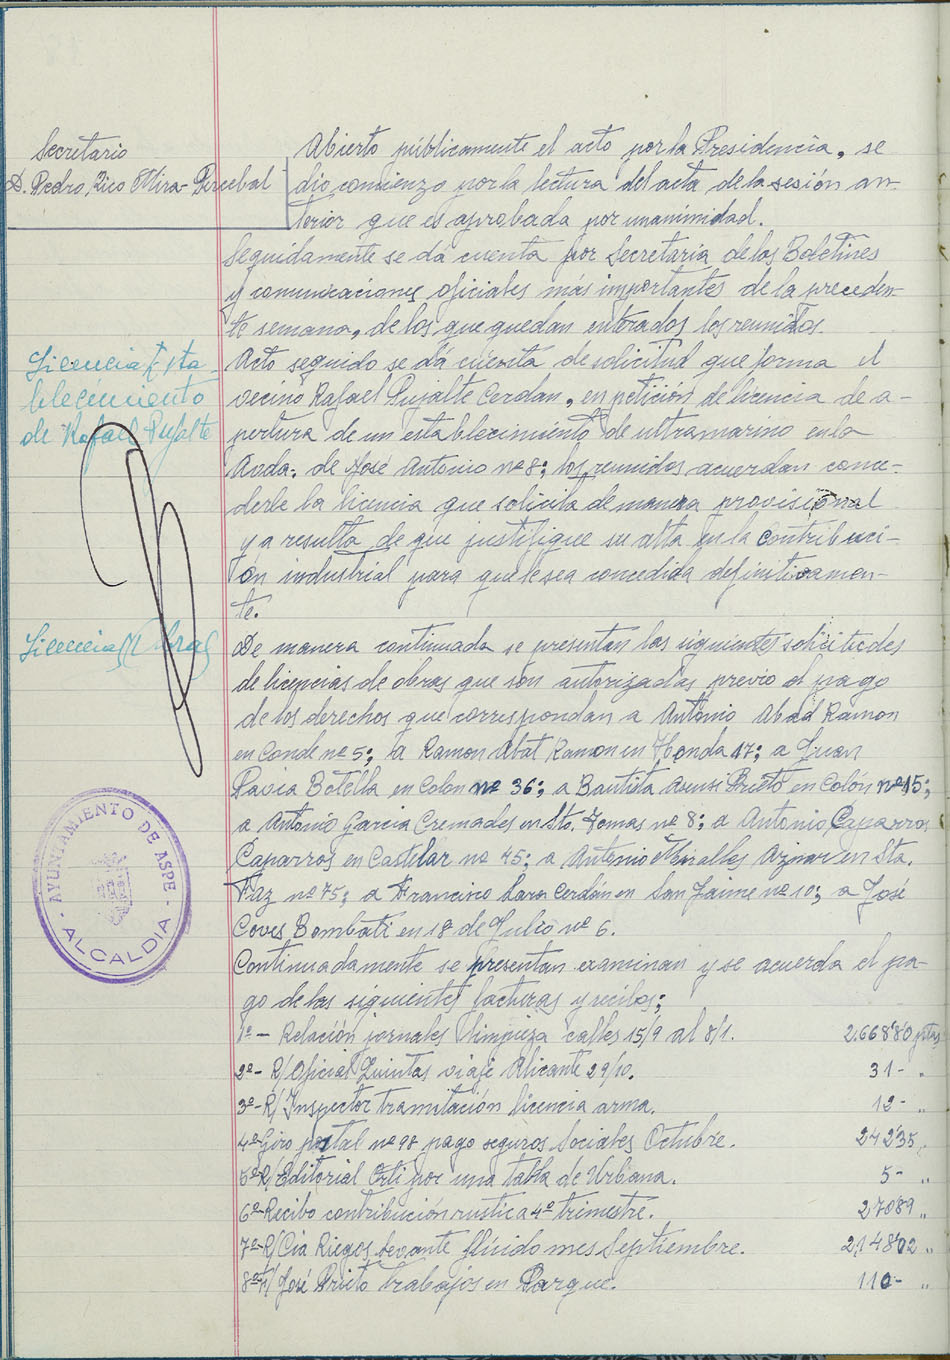 Secretario
D. Pedro Rico Mira-Percebal
Abierto públicamente el acto por la Presidencia, se
dio comienzo por la lectura del acta de la sesión an-
terior que es aprobada por unanimidad.
Seguidamente se dá cuenta por Secretaria de los Boletines
y comunicaciones oficiales más importantes de la preceden-
te semana, de los que quedan enterados los reunidos.
Licencia Esta
blecimiento
de Rafael Pujalte
Acto seguido se dá cuenta de solicitud que forma el
vecino Rafael Pujalte Cerdan, en petición de licencia de a-
pertura de un establecimiento de ultramarino en la
Avda. de José Antonio nº 8; los reunidos acuerdan conce-
derle la licencia que solicita de manera provisional
y a resulta de que justifique su alta en la Contribuci-
ón industrial para que le sea concedida definitivamen-
te.
Licencias Obras
De manera continuada se presentan las siguientes solicitudes
de licencias de obras que son autorizadas previo el pago
de los derechos que correspondan a Antonio Abad Ramon
en Conde nº 5; a Ramon Abat Ramon en Honda 17; a Juan
Pavia Botella en Colon nº 36; a Bautista Asensi Prieto en Colón nº 15;
a Antonio Garcia Cremades en Sto. Tomas nº 8; a Antonio Caparros
Caparros en Castelar nº 45; a Antonio Miralles Aznar en Sta.
Faz nº 75; a Francisco Lara Cerdán en San Jaime nº 10; a José
Coves Bombati en 18 de Julio nº 6.
AYUNTAMIENTO DE ASPE
- ALCALDIA -
Continuadamente se presentan examinan y se acuerda el pa-
go de las siguientes facturas y recibos;
1º- Relación jornales limpieza calles 15/9 al 8/1. 2.668'80 ptas
2º- R/ Oficial Quintas viaje Alicante 29/10. 31- "
3º- R/ Inspector tramitación licencia arma. 12- "
4º- Giro postal nº 98 pago seguros Sociales Octubre. 242'35 "
5º R/ Editorial Orti por una tabla de Urbana. 5- "
6º- Recibo contribución rustica 4º trimestre. 270'89 "
7º- R/ Cia Riegos Levante fluido mes Septiembre. 2,148'02 "
8º- R/ José Prieto trabajos en Parque. 110- "